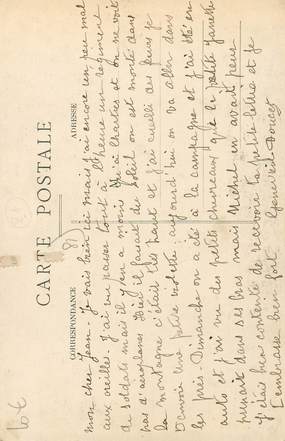 CARTE POSTALE
CORRESPONDANCE
ADRESSE
mon cher Jean. Je vais bien ici mais j'ai encore un peu mal
aux oreilles. J'ai vu passer tout à l'heure un regiment
de soldats mais il y en a moins qu'à Chartres et on ne voit
pas d'aeroplanes. Hier il faisait du soleil on est monté dans
la montagne c'était très haut et j'ai cueilli des fleurs je
t'envoie une petite violette: aujourd'hui on va aller dans
les prés. Dimanche on a été à la campagne et j'ai été en
auto et j'ai vu des petits chevreaux que le petit Janetti
prenait dans ses bras mais Michel en avait peur
j'étais bien contente de recevoir ta petite lettre et je
t'embrasse bien fort Geneviève